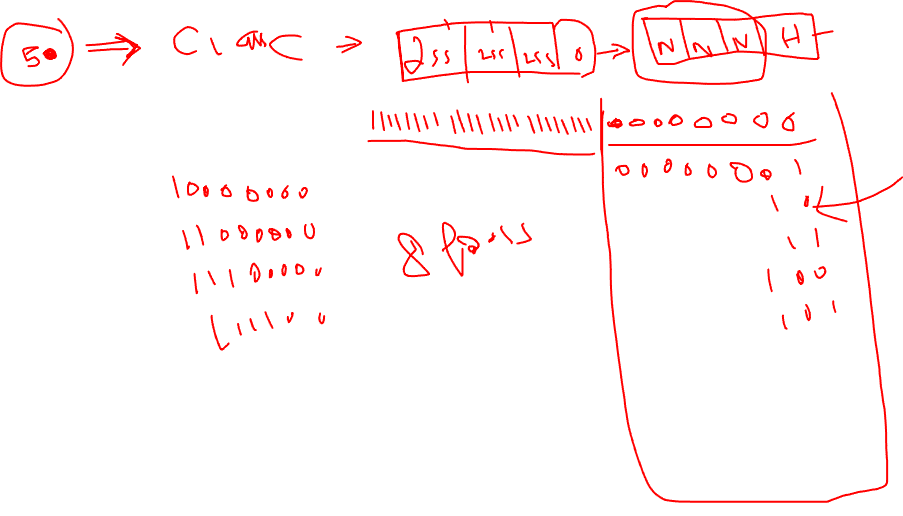 50 ⇒ Class C → 255 255 255 0 → N N N H
11111111 11111111 11111111 00000000
00000001
10000000
10
11000000
11
11100000
100
111100
101